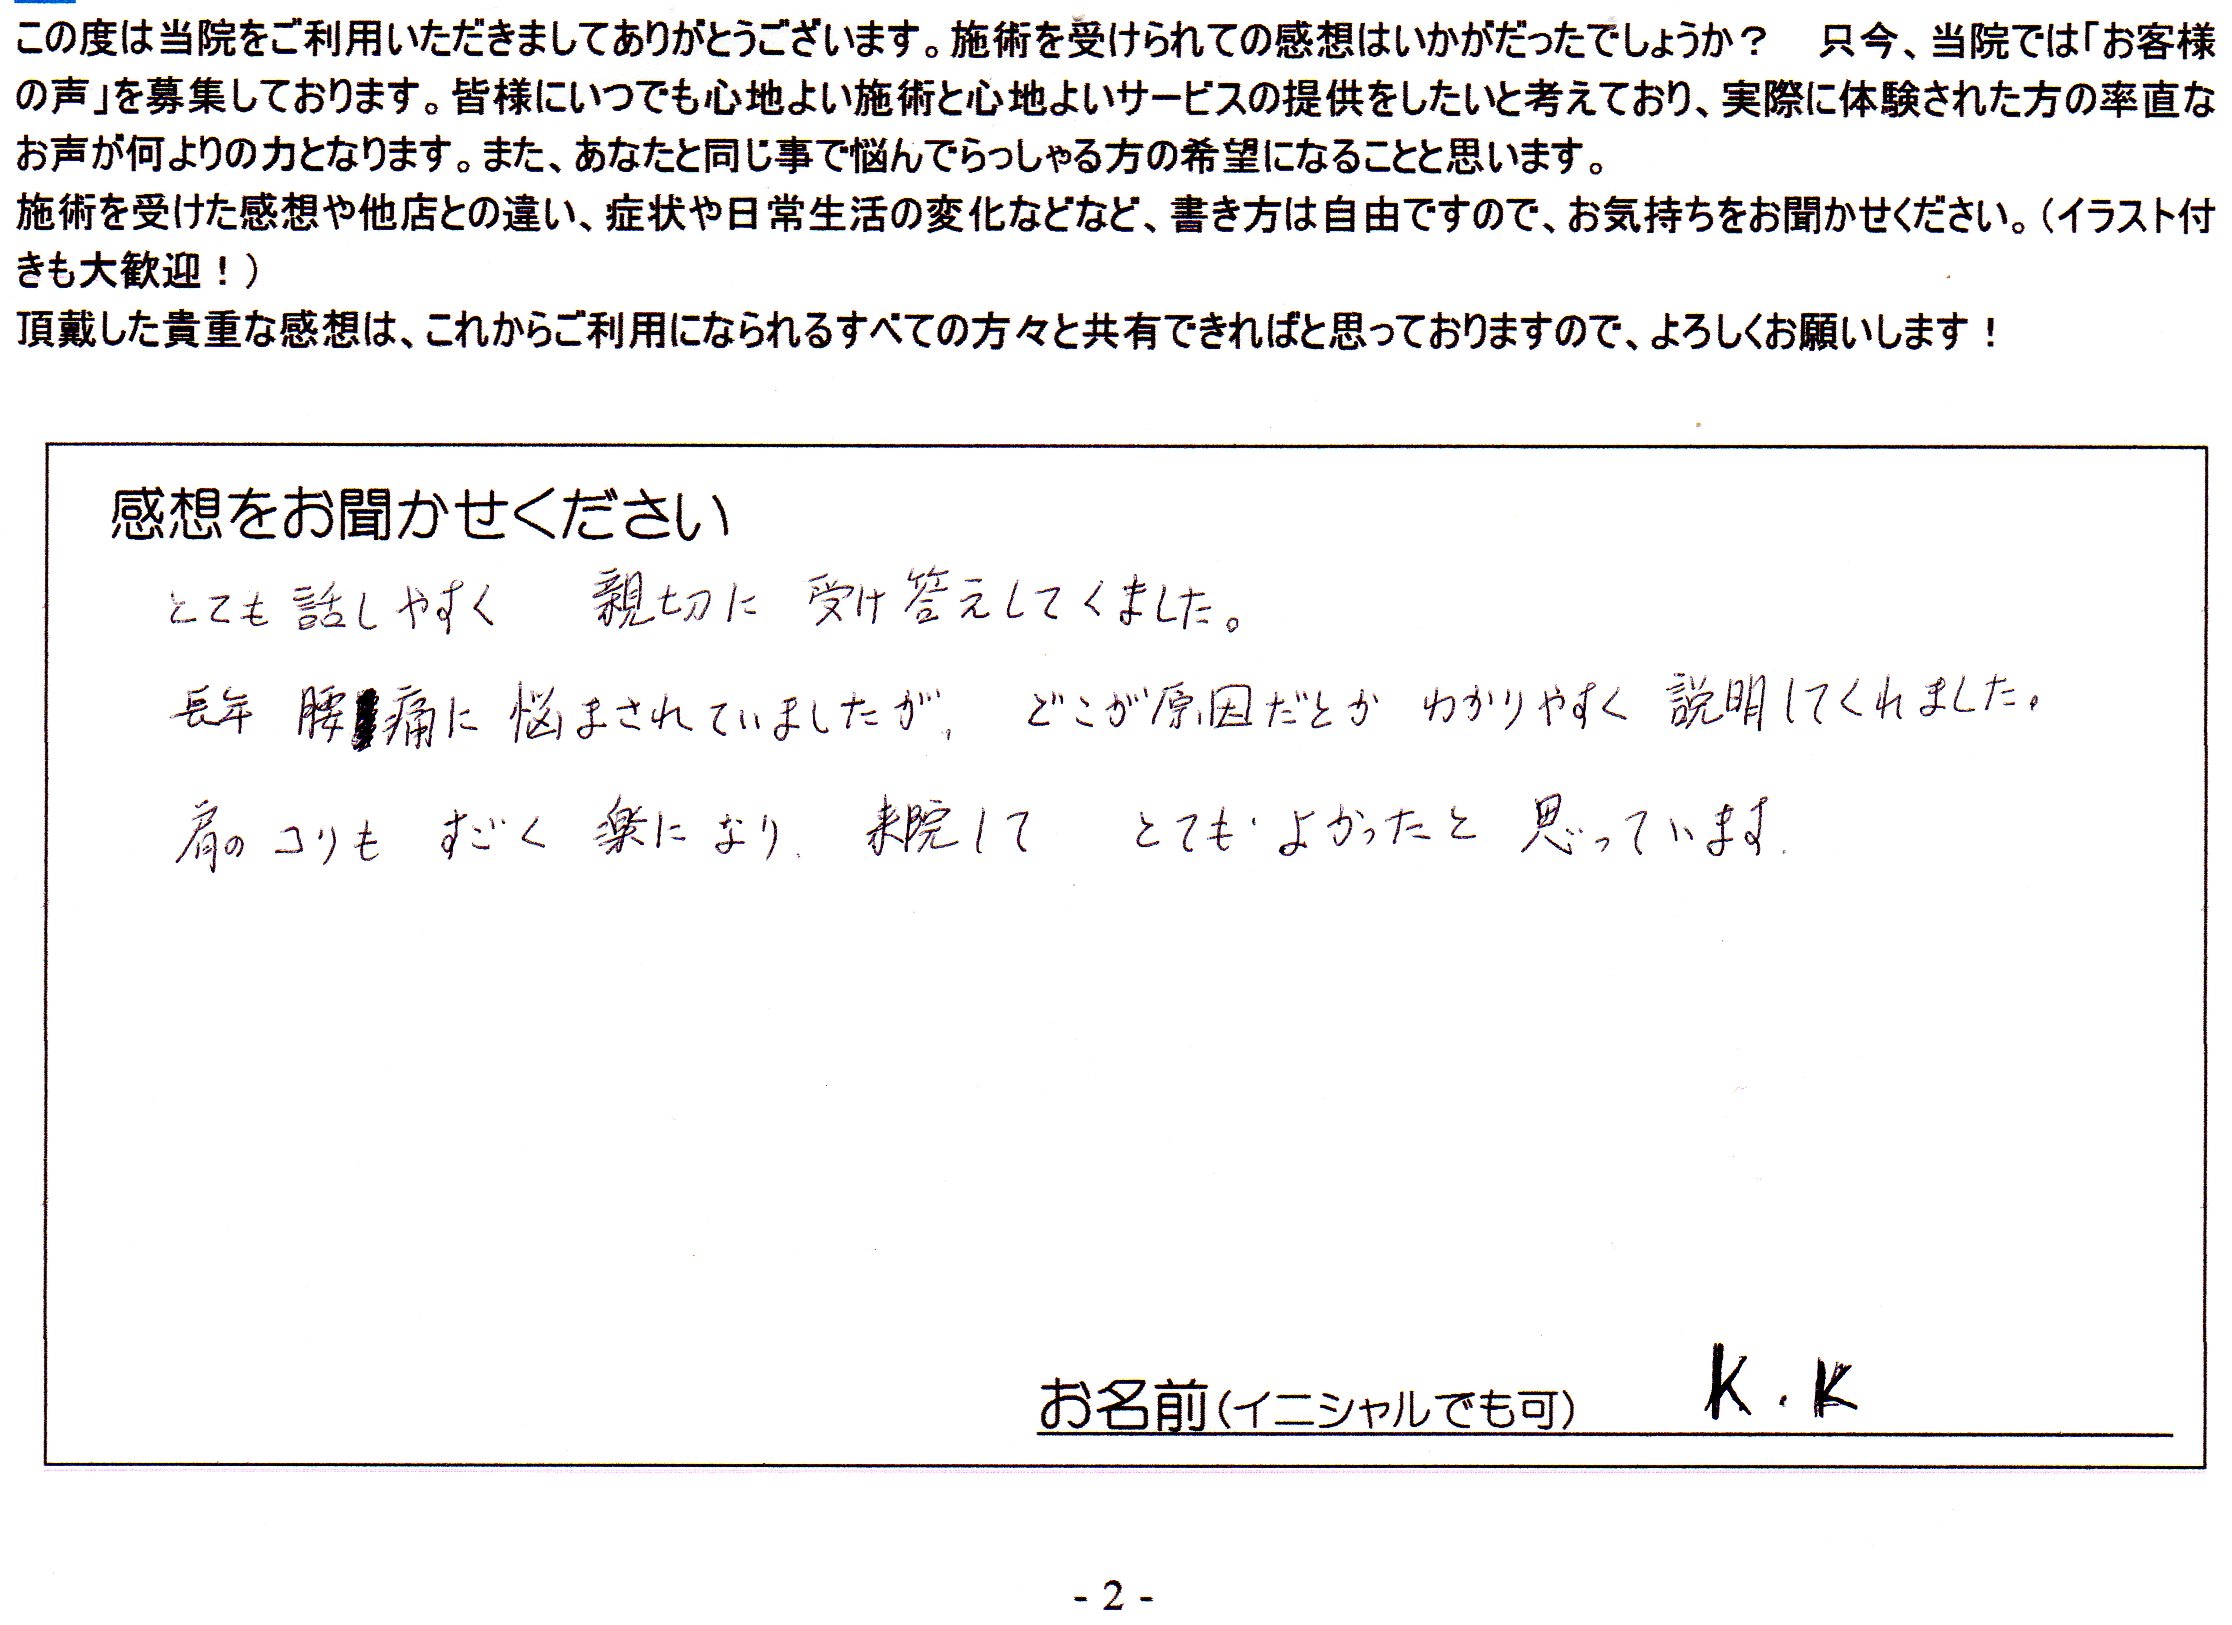 この度は当院をご利用いただきましてありがとうございます。施術を受けられての感想はいかがだったでしょうか？　只今、当院では「お客様
の声」を募集しております。皆様にいつでも心地よい施術と心地よいサービスの提供をしたいと考えており、実際に体験された方の率直な
お声が何よりの力となります。また、あなたと同じ事で悩んでらっしゃる方の希望になることと思います。
施術を受けた感想や他店との違い、症状や日常生活の変化などなど、書き方は自由ですので、お気持ちをお聞かせください。（イラスト付
きも大歓迎！）
頂戴した貴重な感想は、これからご利用になられるすべての方々と共有できればと思っておりますので、よろしくお願いします！
感想をお聞かせください
とても話しやすく　親切に 受け答えしてくました。
長年 腰痛に悩まされていましたが、どこが原因だとか わかりやすく 説明してくれました。
肩のコリも すごく 楽になり、来院して　とても よかったと 思っています.
お名前（イニシャルでも可）　K.K
- 2 -